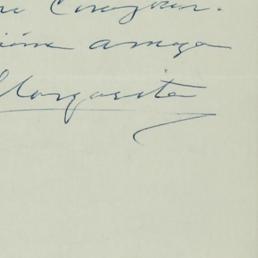 Corazón.
amiga
Margarita